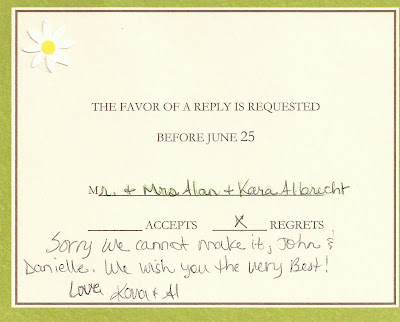 THE FAVOR OF A REPLY IS REQUESTED
BEFORE JUNE 25
Mr. + Mrs Alan + Kara Albrecht
ACCEPTS X REGRETS
Sorry we cannot make it, John &
Danielle. We wish you the very Best!
Love, Kara + Al